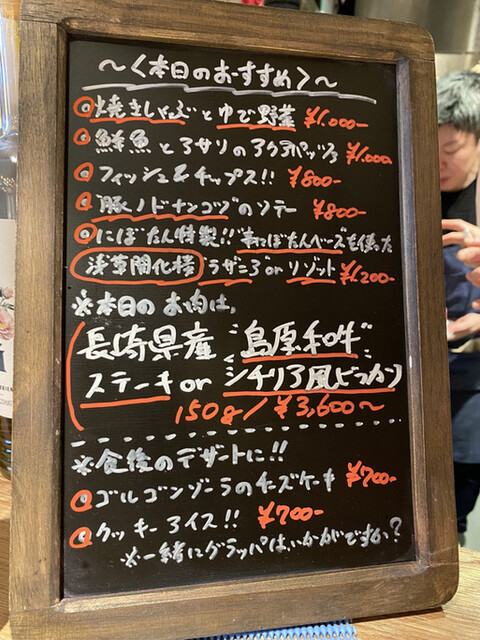 ～〈本日のおすすめ〉～
焼きしゃぶとゆで野菜 ¥1.000-
鮮魚とアサリのアクアパッツァ ¥1.000-
フィッシュ&チップス!! ¥800-
豚ノドナンコツのソテー ¥800-
にぼたん特製!! 本にぼたんベーズを使った
浅草開化楼 ラザニア or リゾット ¥1.200-
※本日のお肉は、
長崎県産 "島原和牛"
ステーキ or シチリア風ビッカン
150g/¥3,600～
※食後のデザートに!!
ゴルゴンゾーラのチーズケーキ ¥700-
クッキーアイス!! ¥700-
※一緒にグラッパはいかがですか?